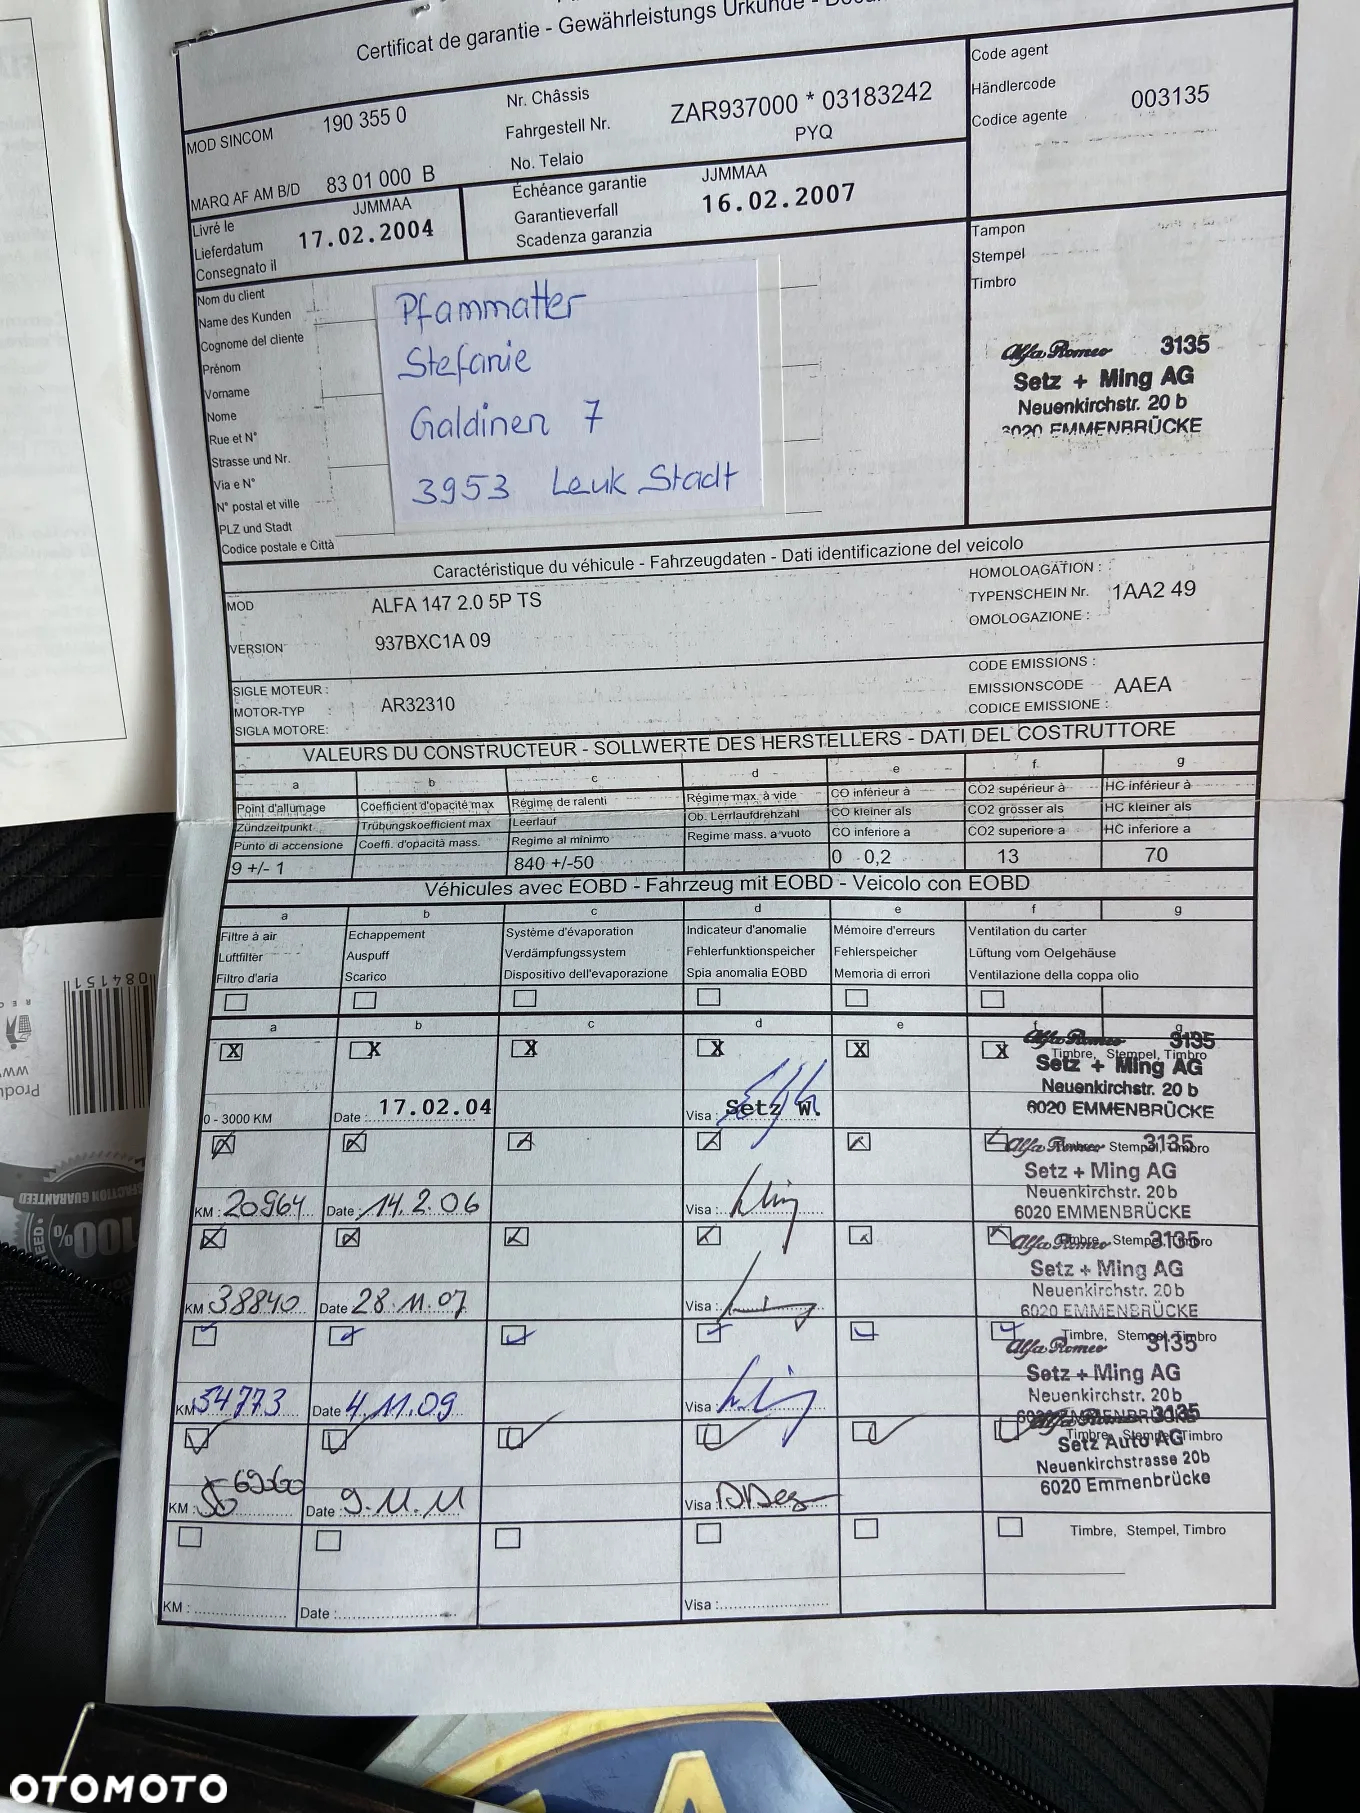 Certificat de garantie - Gewährleistungs Urkunde -
MOD SINCOM 190 355 0
Nr. Châssis
Fahrgestell Nr.
No. Telaio
ZAR937000 * 03183242
PYQ
Code agent
Händlercode
Codice agente
003135
MARQ AF AM B/D 83 01 000 B
Livré le
Lieferdatum
Consegnato il
JJMMAA
17.02.2004
Échéance garantie
Garantieverfall
Scadenza garanzia
JJMMAA
16.02.2007
Tampon
Stempel
Timbro
Alfa Romeo 3135
Setz + Ming AG
Neuenkirchstr. 20 b
6020 EMMENBRÜCKE
Nom du client
Name des Kunden
Cognome del cliente
Prénom
Vorname
Nome
Rue et N°
Strasse und Nr.
Via e N°
N° postal et ville
PLZ und Stadt
Codice postale e Città
Pfammatter
Stefanie
Galdinen 7
3953 Leuk Stadt
Caractéristique du véhicule - Fahrzeugdaten - Dati identificazione del veicolo
MOD ALFA 147 2.0 5P TS
VERSION 937BXC1A 09
HOMOLOAGATION :
TYPENSCHEIN Nr. 1AA2 49
OMOLOGAZIONE :
SIGLE MOTEUR :
MOTOR-TYP AR32310
SIGLA MOTORE:
CODE EMISSIONS :
EMISSIONSCODE AAEA
CODICE EMISSIONE :
VALEURS DU CONSTRUCTEUR - SOLLWERTE DES HERSTELLERS - DATI DEL COSTRUTTORE
a b c d e f g
Point d'allumage Coefficient d'opacité max Régime de ralenti Régime max. à vide CO inférieur à CO2 supérieur à HC inférieur à
Zündzeitpunkt Trübungskoefficient max Leerlauf Ob. Lerrlaufdrehzahl CO kleiner als CO2 grösser als HC kleiner als
Punto di accensione Coeffi. d'opacità mass. Regime al minimo Regime mass. a vuoto CO inferiore a CO2 superiore a HC inferiore a
9 +/- 1 840 +/-50 0 0,2 13 70
Véhicules avec EOBD - Fahrzeug mit EOBD - Veicolo con EOBD
a b c d e f g
Filtre à air Echappement Système d'évaporation Indicateur d'anomalie Mémoire d'erreurs Ventilation du carter
Luftfilter Auspuff Verdämpfungssystem Fehlerfunktionspeicher Fehlerspeicher Lüftung vom Oelgehäuse
Filtro d'aria Scarico Dispositivo dell'evaporazione Spia anomalia EOBD Memoria di errori Ventilazione della coppa olio
a b c d e f g
X X X X X X
0 - 3000 KM Date : 17.02.04 Visa : Setz W.
Timbre, Stempel, Timbro
Alfa Romeo 3135
Setz + Ming AG
Neuenkirchstr. 20 b
6020 EMMENBRÜCKE
KM : 20964 Date : 14.2.06 Visa :
Timbre, Stempel, Timbro
Alfa Romeo 3135
Setz + Ming AG
Neuenkirchstr. 20b
6020 EMMENBRÜCKE
KM 38840 Date 28.11.07 Visa :
Timbre, Stempel, Timbro
Alfa Romeo 3135
Setz + Ming AG
Neuenkirchstr. 20b
6020 EMMENBRÜCKE
KM 54773 Date 4.11.09 Visa :
Timbre, Stempel, Timbro
Alfa Romeo 3135
Setz + Ming AG
Neuenkirchstr. 20b
6020 EMMENBRÜCKE
KM : Date : 9.11.11 Visa :
Timbre, Stempel, Timbro
Alfa Romeo 3135
Setz Auto AG
Neuenkirchstrasse 20b
6020 Emmenbrücke
KM : Date : Visa :
Timbre, Stempel, Timbro
084151
100%
OTOMOTO